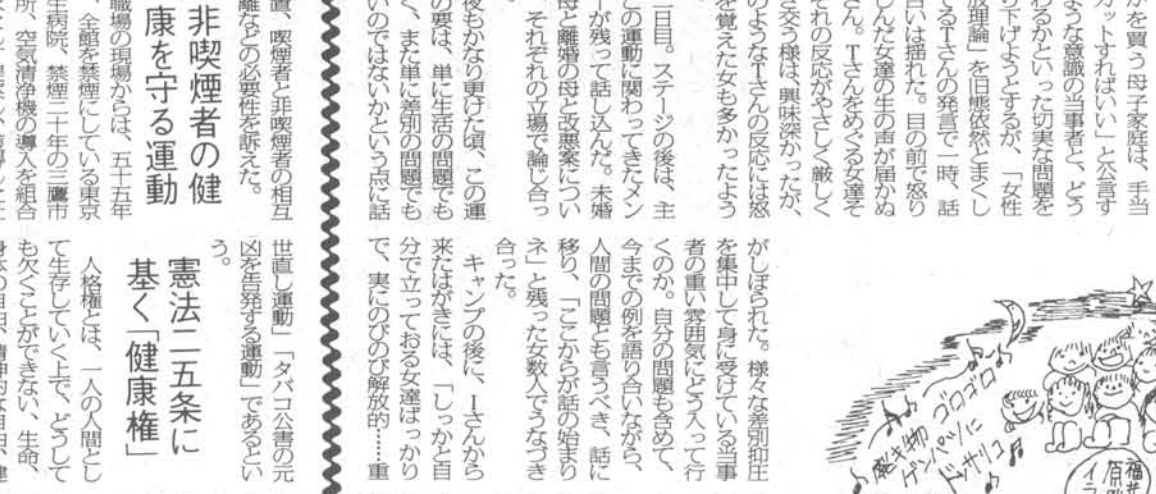 かを買う母子家庭は、手当
カットすればいい」と公言す
ような意識の当事者と、どう
わるかといった切実な問題を
り下げようとするが、「女性
放理論」を旧態依然とまくし
てるTさんの発言で一時、話
合いは揺れた。目の前で怒り
しんだ女達の生の声が届かぬ
さん。Tさんをめぐる女達そ
それの反応がやさしく厳しく
き交う様は、興味深かったが、
のようなTさんの反応には怒
を覚えた女も多かったよう
二日目。ステージの後は、主
この運動に関わってきたメン
ーが残って話し込んだ。未婚
母と離婚の母と改悪案につい
、それぞれの立場で論じ合っ
後もかなり更けた頃、この運
の要は、単に生活の問題でも
く、また単に差別の問題でも
いのではないかという点に話
がしぼられた。様々な差別抑圧
を集中して身に受けている当事
者の重い雰囲気にどう入って行
くのか。自分の問題も含めて、
今までの例を語り合いながら、
人間の問題とも言うべき、話に
移り、「ここからが話の始まり
ネ」と残った女数人でうなづき
合った。
キャンプの後に、Iさんから
来たはがきには、「しっかと自
分で立っておる女達ばっかり
で、実にのびのび解放的……重
ゴロゴロ
ゲンパツに
ドッサリコ
福井
非喫煙者の健
康を守る運動
置、喫煙者と非喫煙者の相互
離などの必要性を訴えた。
職場の現場からは、五十五年
、全館を禁煙にしている東京
生病院、禁煙二十年の三鷹市
所、空気清浄機の導入を組合
世直し運動」「タバコ公害の元
凶を告発する運動」であるとい
う。
憲法二五条に
基く「健康権」
人格権とは、一人の人間とし
て生存していく上で、どうして
も欠くことができない、生命、
身体の自由、精神的な自由、健